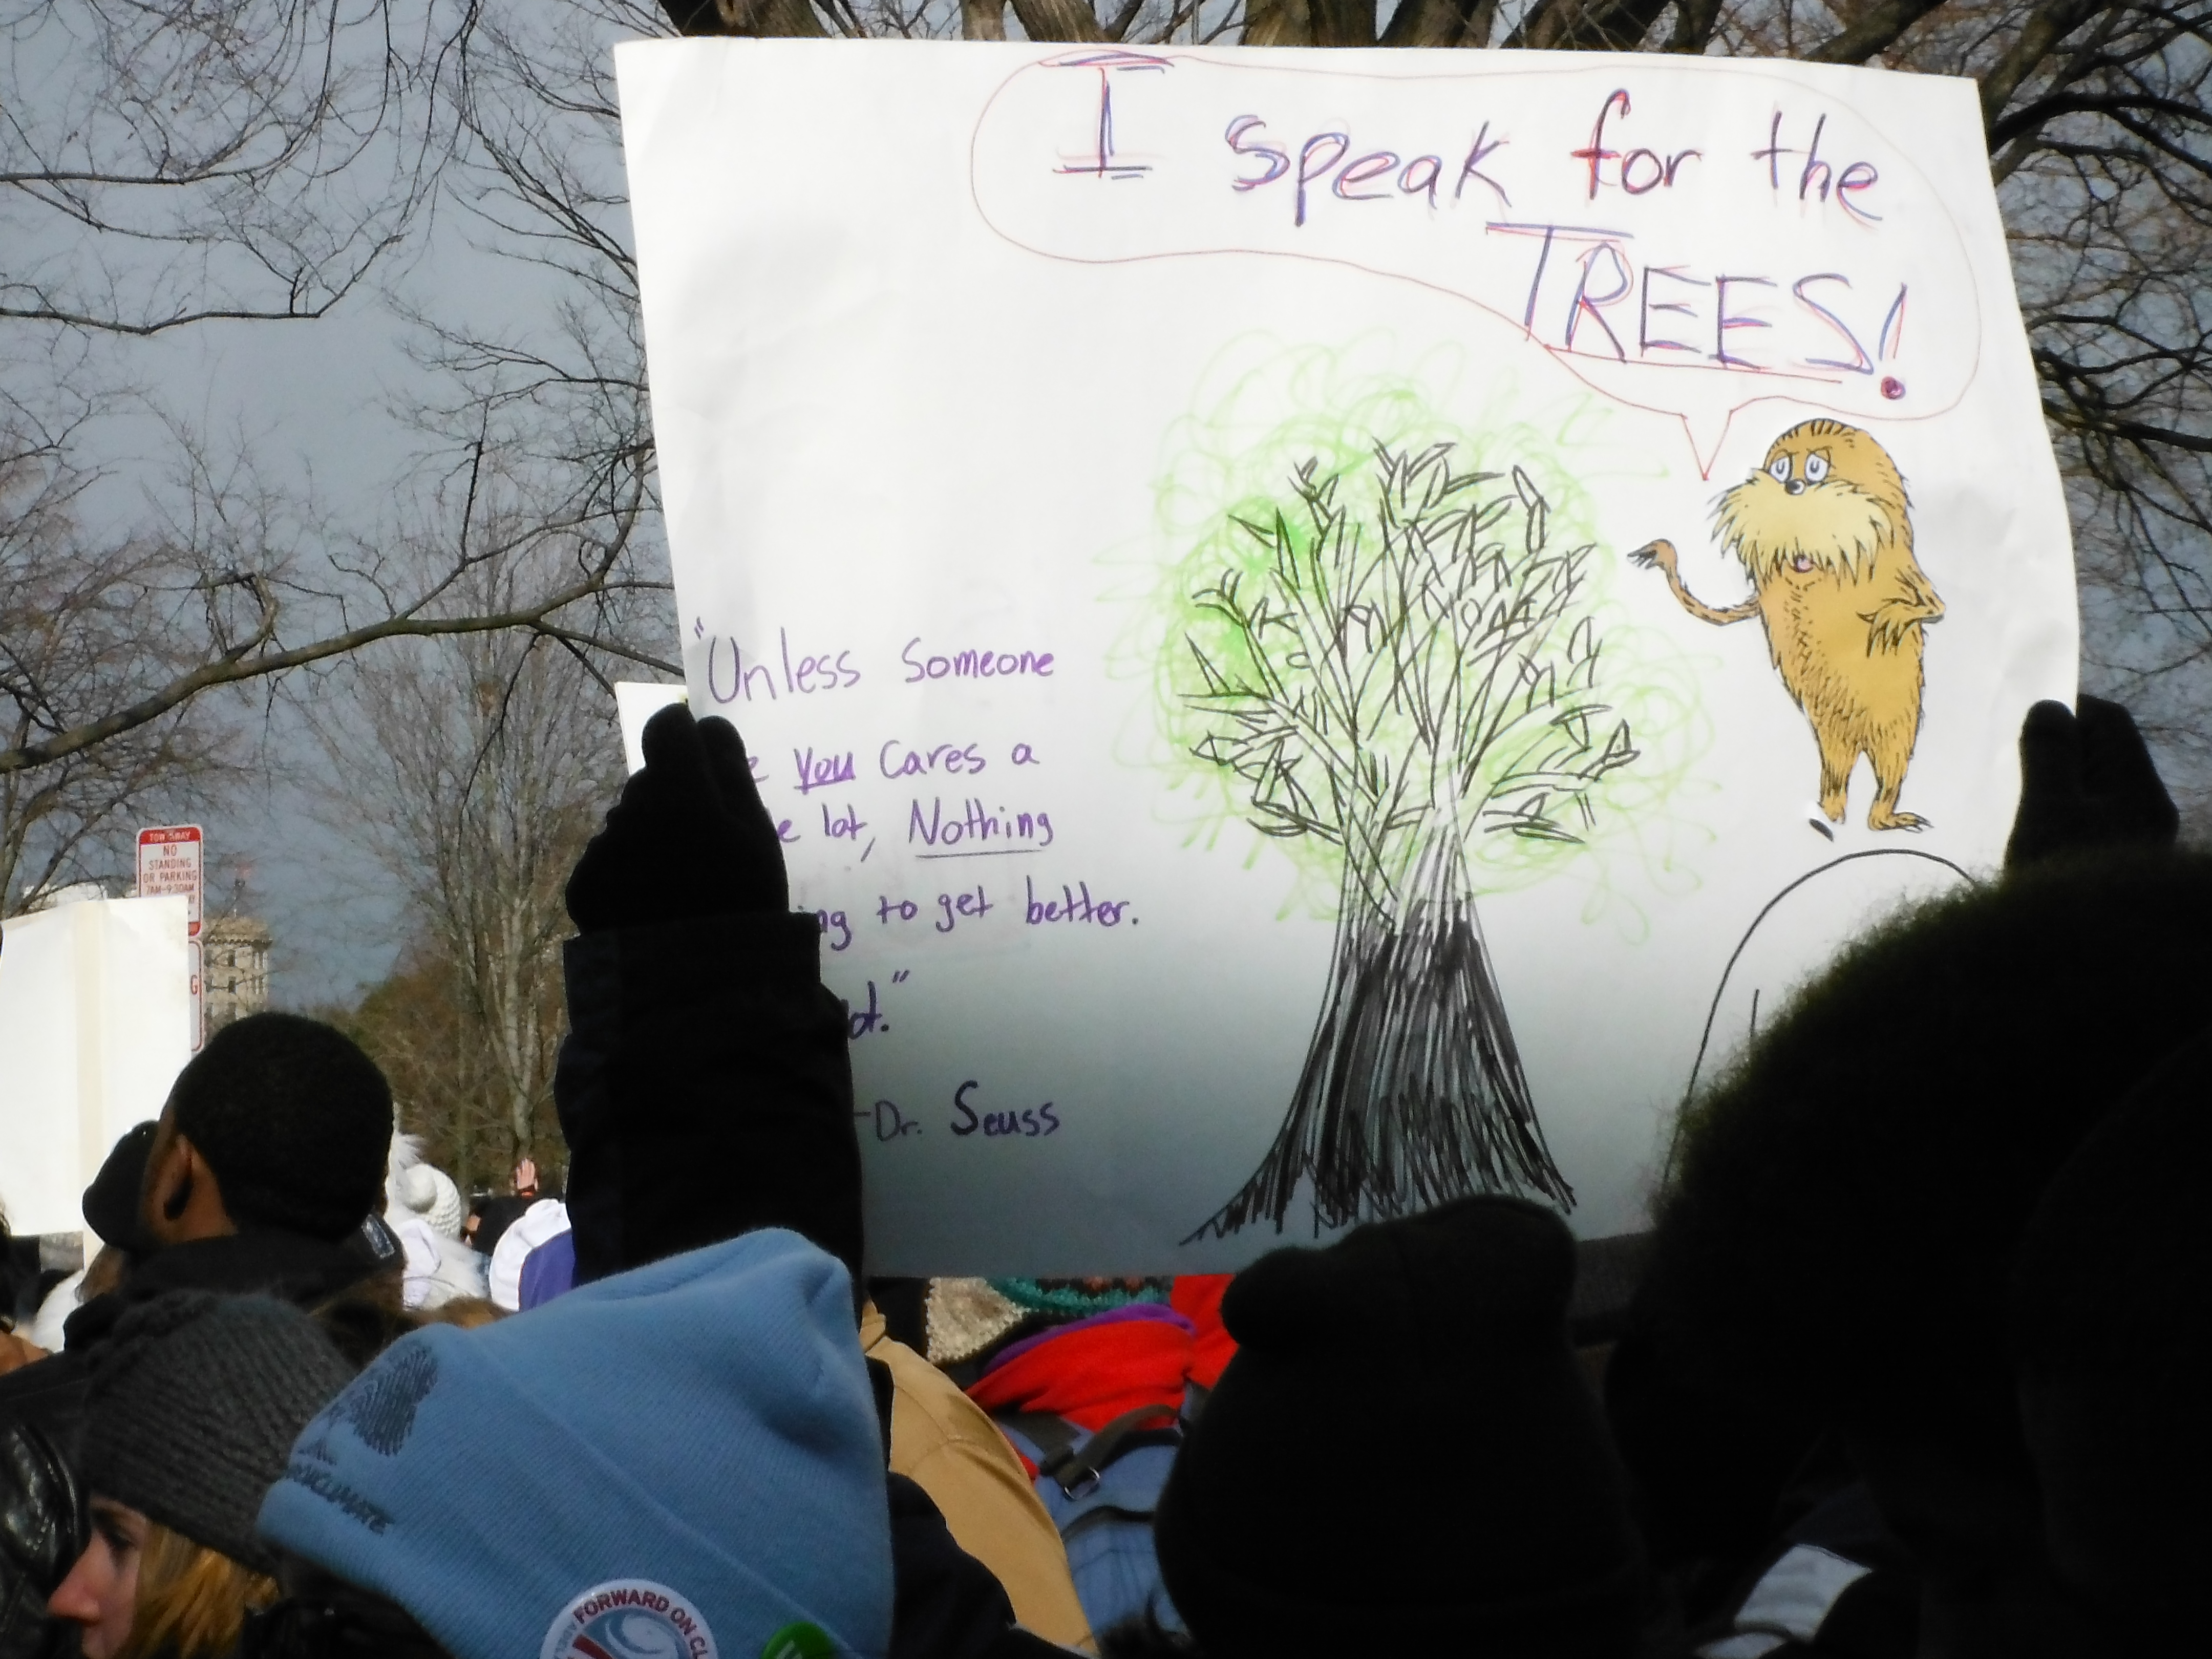 I speak for the
TREES!
"Unless Someone
you Cares a
lot, Nothing
to get better.
-Dr. Seuss
TOW AWAY
NO
STANDING
OR PARKING
7AM-9:30AM
FORWARD ON